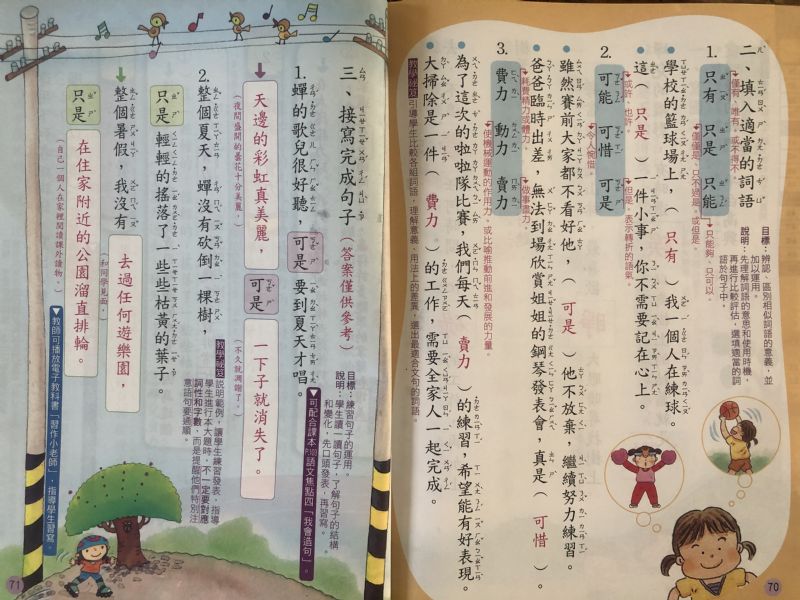 二、填入適當的詞語
目標：辨認、區別相似詞語的意義，並加以運用。
說明：先理解詞語的意思和使用時機，再進行比較評估，選填適當的詞語於句子中。
1. 只有 只是 只能
僅有、唯有，或表得不。
僅僅是、只不過是。或但是。
只能夠、只可以
學校的籃球場上，（只有）我一個人在練球。
這（只是）一件小事，你不需要記在心上。
2. 可能 可惜 可是
或許、也許。
令人惋惜。
但是。表示轉折的語氣。
雖然賽前大家都不看好他，（可是）他不放棄，繼續努力練習。
爸爸臨時出差，無法到場欣賞姐姐的鋼琴發表會，真是（可惜）。
3. 費力 動力 賣力
耗費精力或體力。
使機械運動的作用力。或比喻推動前進和發展的力量。
做事盡力。
為了這次的啦啦隊比賽，我們每天（賣力）的練習，希望能有好表現。
大掃除是一件（費力）的工作，需要全家人一起完成。
教學祕笈 引導學生比較各組詞語，理解意義、用法上的差異，選出最適合文句的詞語。
70
三、接寫完成句子（答案僅供參考）
目標：練習句子的運用。
說明：學生讀一讀句子，了解句子的結構和變化，先口頭發表，再習寫。
▼可配合課本P.103語文焦點四「我會造句」。
1. 蟬的歌兒很好聽，可是要到夏天才唱。
天邊的彩虹真美麗，可是一下子就消失了。
（夜間盛開的曇花十分美麗，）
（不久就凋謝了。）
2. 整個夏天，蟬沒有砍倒一棵樹，
只是輕輕的搖落了一些些枯黃的葉子。
教學祕笈 說明範例，讓學生練習發表，指導學生進行本大題時，不一定要對應詞性和字數，而是提醒他們特別注意語句要通順。
整個暑假，我沒有去過任何遊樂園，
（和同學見面，）
只是在住家附近的公園溜直排輪。
（自己一個人在家裡閱讀課外讀物。）
▼教師可播放電子教科書「習作小老師」，指導學生習寫。
71